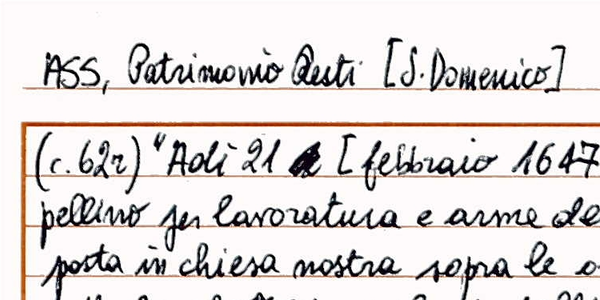 ASS, Patrimonio Resti [S. Domenico]
(c. 62r) "Adì 21 [febbraio 1647
pellino per lavoratura e arme de
posta in chiesa nostra sopra le